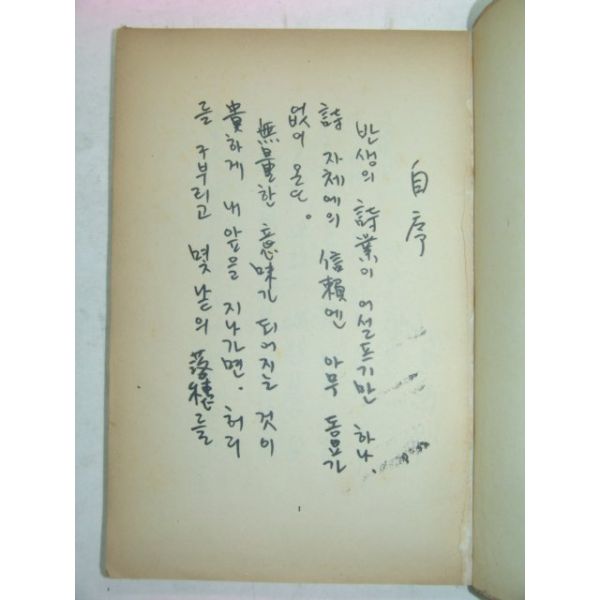 自序
반생의 詩業이 어설프기만 하나,
詩 자체에의 信賴엔 아무 동요가
없어 온다.
無量한 意味가 되어지는 것이
貴하게 내 앞을 지나가면, 허리
를 구부리고 몇 낱의 落穗를
1